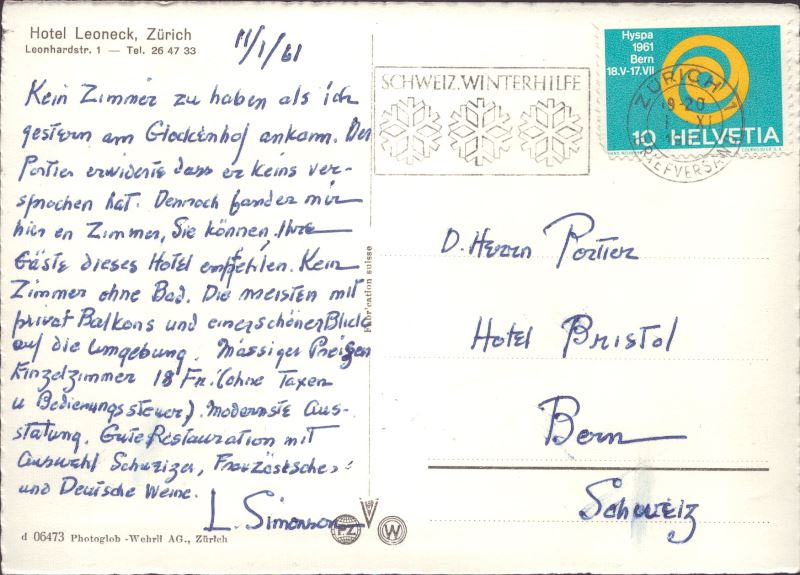 Hotel Leoneck, Zürich
Leonhardstr. 1 — Tel. 26 47 33
11/1/61
Kein Zimmer zu haben als ich
gestern am Glockenhof ankam. Der
Portier erwiderte dass er keins ver-
sprochen hat. Dennoch fanden wir
hier en Zimmer, Sie können, Ihre
Gäste dieses Hotel empfehlen. Kein
Zimmer ohne Bad. Die meisten mit
privat Balkons und einer schöner Blick
auf die Umgebung. Mässiger Preisen
Einzelzimmer 18 Fr. (ohne Taxen
u Bedienungssteuer). Modernste Aus-
statung. Gute Restauration mit
Auswahl Schweizer, Französische
und Deutsche Weine.
L. Simonson
d 06473 Photoglob -Wehrli AG., Zürich
Fabrication suisse
PZ
W
SCHWEIZ. WINTERHILFE
Hyspa
1961
Bern
18.V-17.VII
10 HELVETIA
ZÜRICH 1
9-20
XI
BRIEFVERSAND
D. Herrn Portier
Hotel Bristol
Bern
Schweiz